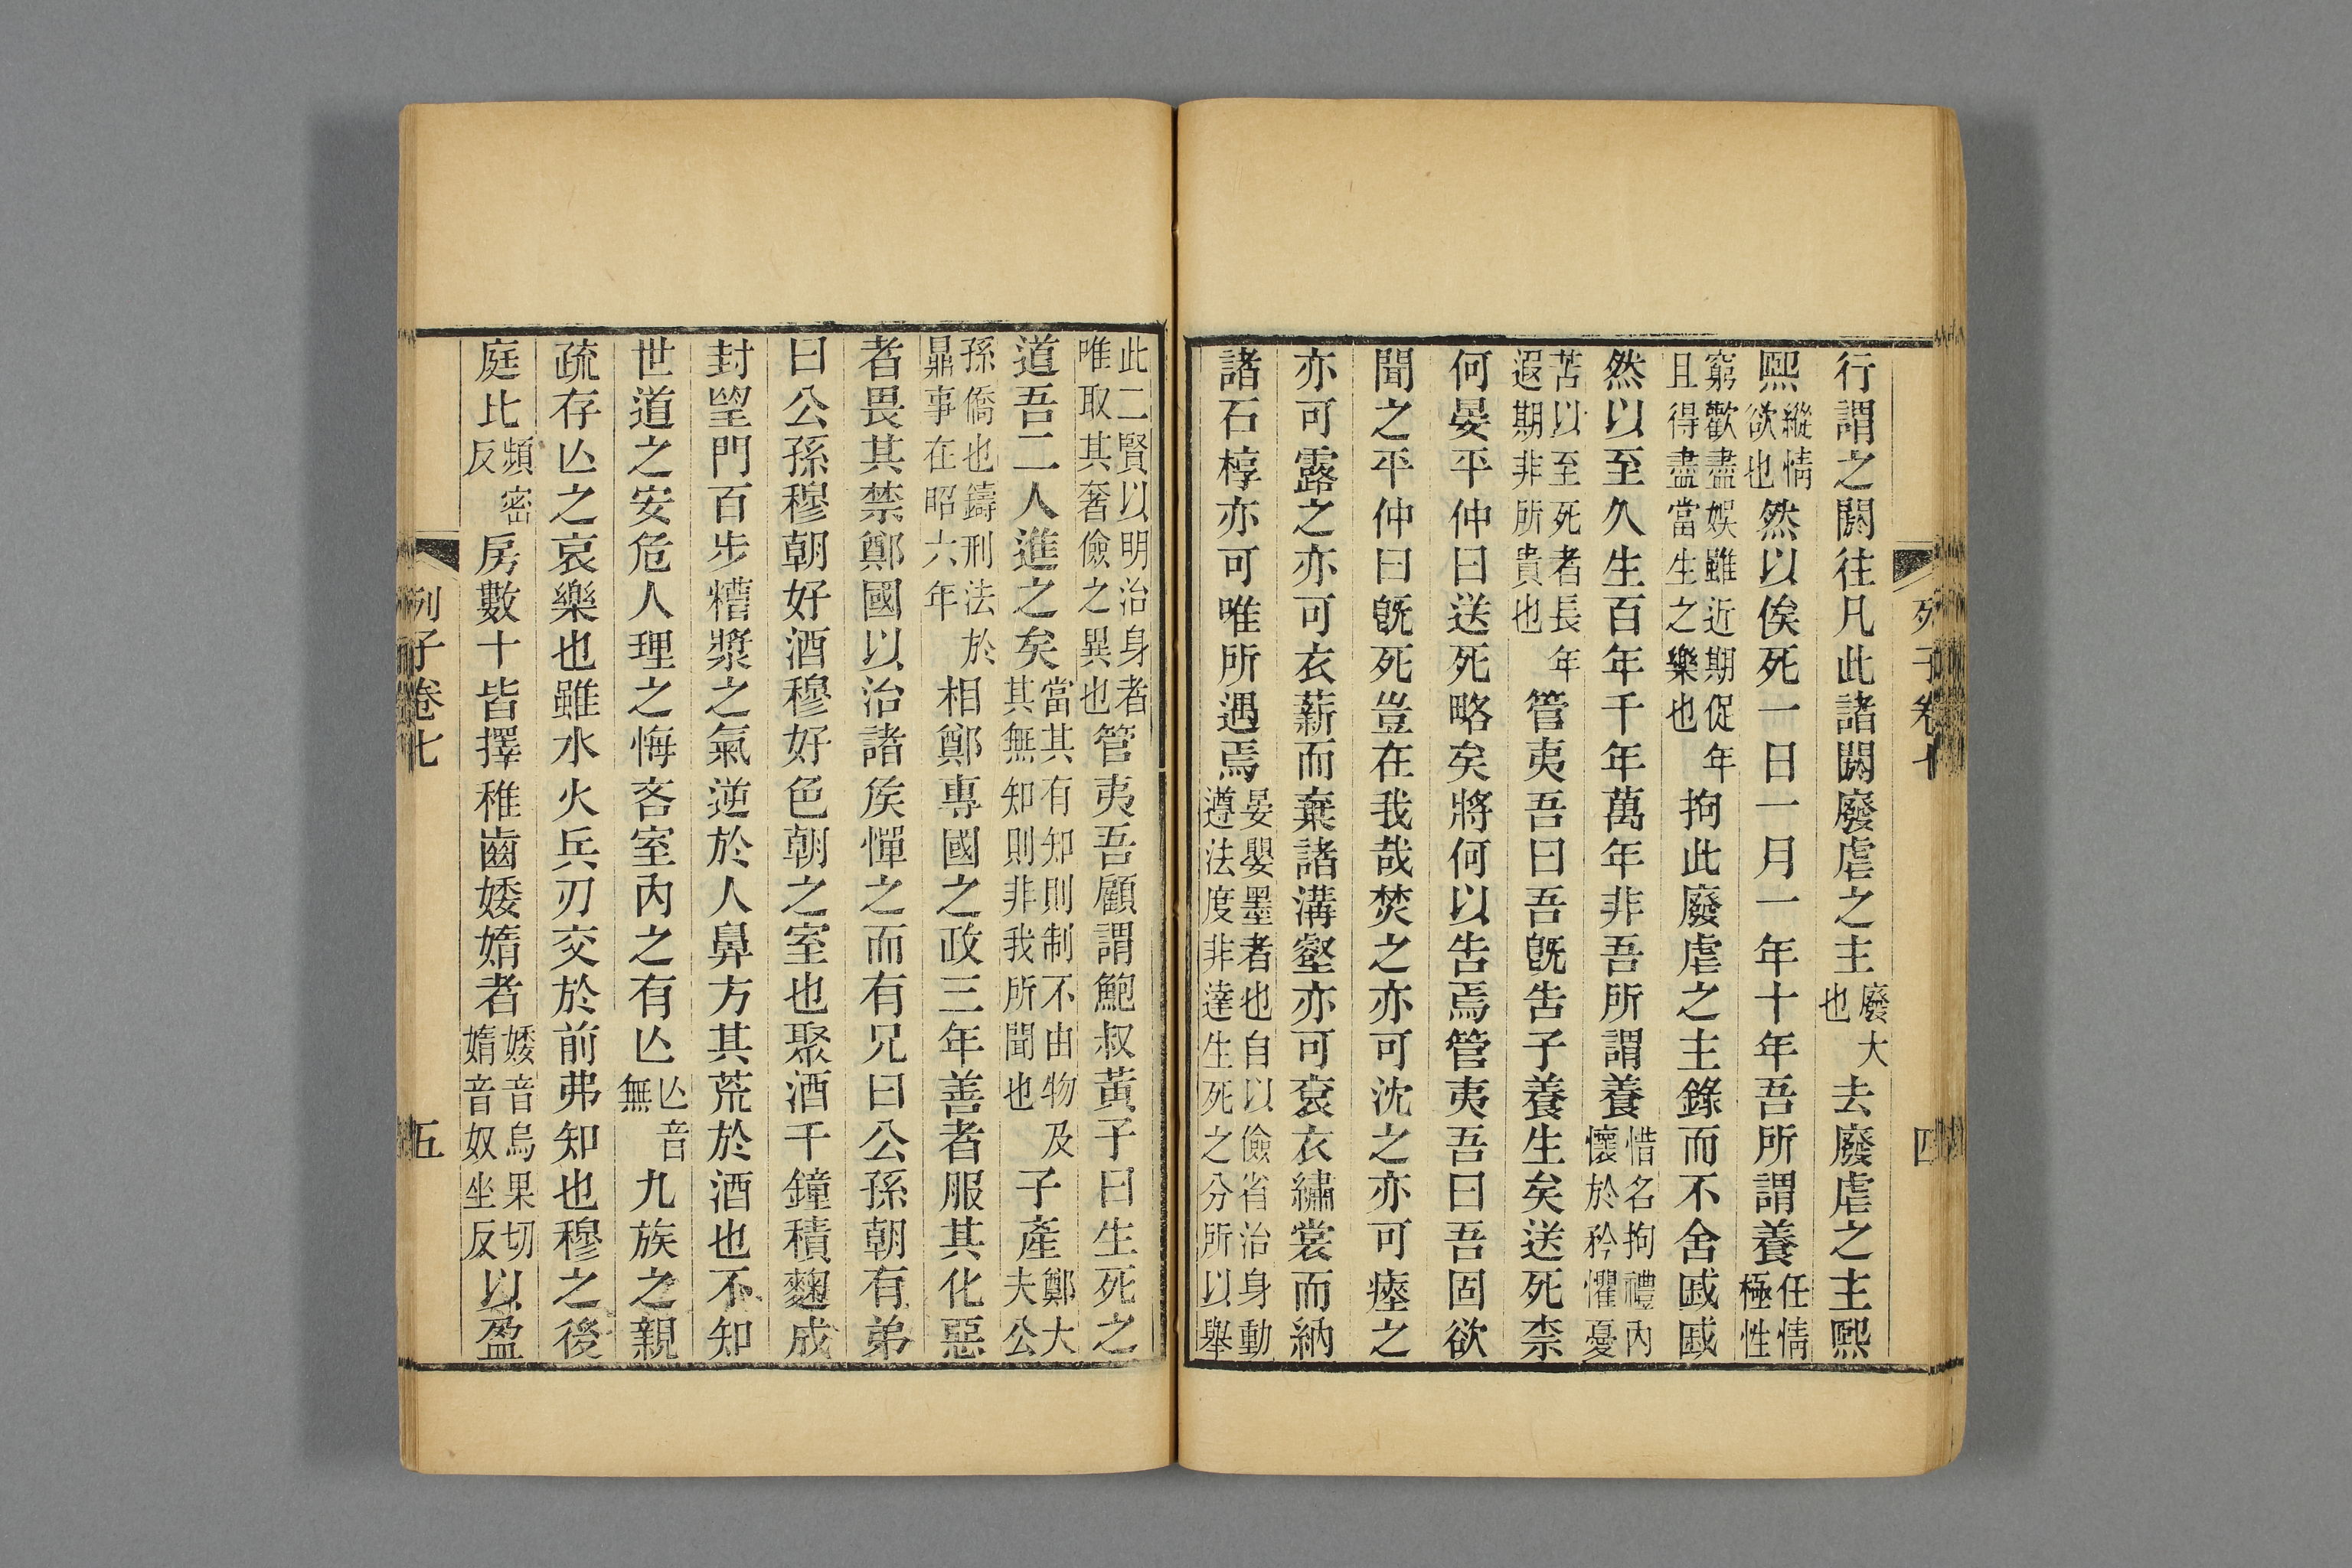 列子卷七
四
行謂之閼往凡此諸閼廢虐之主廢大也去廢虐之主熙
熙縱情欲也然以俟死一日一月一年十年吾所謂養任情極性
窮歡盡娛雖近期促年且得盡當生之樂也拘此廢虐之主錄而不舍戚戚
然以至久生百年千年萬年非吾所謂養惜名拘禮內懷於矜懼憂
苦以至死者長年遐期非所貴也管夷吾曰吾旣告子養生矣送死柰
何晏平仲曰送死略矣將何以告焉管夷吾曰吾固欲
聞之平仲曰旣死豈在我哉焚之亦可沈之亦可瘞之
亦可露之亦可衣薪而棄諸溝壑亦可袞衣繡裳而納
諸石椁亦可唯所遇焉晏嬰墨者也自以儉省治身動遵法度非達生死之分所以舉
此二賢以明治身者唯取其奢儉之異也管夷吾顧謂鮑叔黃子曰生死之
道吾二人進之矣當其有知則制不由物及其無知則非我所聞也子產鄭大夫公
孫僑也鑄刑法於鼎事在昭六年相鄭專國之政三年善者服其化惡
者畏其禁鄭國以治諸矦憚之而有兄曰公孫朝有弟
曰公孫穆朝好酒穆好色朝之室也聚酒千鐘積麴成
封望門百步糟漿之氣逆於人鼻方其荒於酒也不知
世道之安危人理之悔吝室內之有亾亾音無九族之親
疏存亾之哀樂也雖水火兵刃交於前弗知也穆之後
庭比頻密反房數十皆擇稚齒婑媠者婑音烏果切媠音奴坐反以盈
列子卷七
五